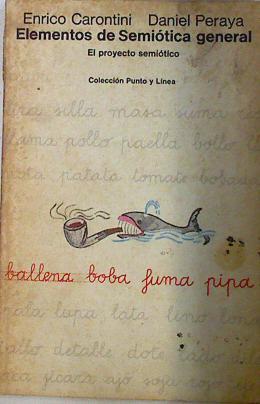 Enrico Carontini Daniel Peraya
Elementos de Semiótica general
El proyecto semiótico
Colección Punto y Línea
silla masa suma
pollo paella bollo
patata tomate
ballena boba fuma pipa
lupa lata lino
detable dote
jícara ajo soja